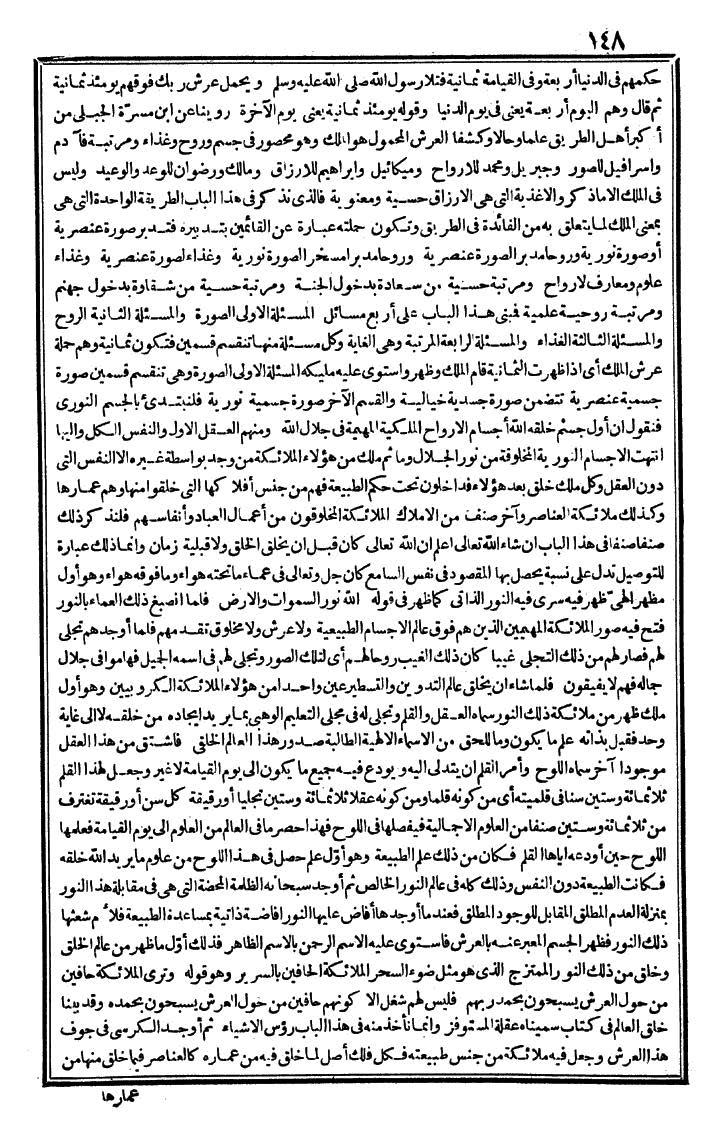 ١٤٨
حكمهم فى الدنيا أربعة وفى القيامة ثمانية فتلا رسول الله صلى الله عليه وسلم ويحمل عرش ربك فوقهم يومئذ ثمانية
ثم قال وهم اليوم أربعة يعنى فى يوم الدنيا وقوله يومئذ ثمانية يعنى يوم الآخرة روينا عن ابن مسرة الجبلى من
أكبر أهل الطريق علما وحالا وكشفا العرش المحمول هو الملك وهو محصور فى جسم وروح وغذاء ومرتبة فآدم
واسرافيل للصور وجبريل ومحمد للارواح وميكائيل وابراهيم للارزاق ومالك ورضوان للوعد والوعيد وليس
فى الملك الا ماذكر والاغذية التى هى الارزاق حسية ومعنوية فالذى نذكر فى هذا الباب الطريقة الواحدة التى هى
بمعنى الملك لما يتعلق به من الفائدة فى الطريق وتكون حملته عبارة عن القائمين بتدبيره فتدبر صورة عنصرية
أو صورة نورية وروحا مدبرا لصورة عنصرية وروحا مدبرا مسخرا لصورة نورية وغذاء لصورة عنصرية وغذاء
علوم ومعارف لارواح ومرتبة حسية من سعادة بدخول الجنة ومرتبة حسية من شقاوة بدخول جهنم
ومرتبة روحية علمية فبنى هذا الباب على أربع مسائل المسئلة الاولى الصورة والمسئلة الثانية الروح
والمسئلة الثالثة الغذاء والمسئلة الرابعة المرتبة وهى الغاية وكل مسئلة منها تنقسم قسمين فتكون ثمانية وهم حملة
عرش الملك أى اذا ظهرت الثمانية قام الملك وظهر واستوى عليه مليكه المسئلة الاولى الصورة وهى تنقسم قسمين صورة
جسمية عنصرية تتضمن صورة جسدية خيالية والقسم الآخر صورة جسمية نورية فلنبتدئ بالجسم النورى
فنقول ان أول جسم خلقه الله أجسام الارواح الملكية المهيمة فى جلال الله ومنهم العقل الاول والنفس الكل واليها
انتهت الاجسام النورية المخلوقة من نور الجلال وما ثم ملك من هؤلاء الملائكة من وجد بواسطة غيره الا النفس التى
دون العقل وكل ملك خلق بعد هؤلاء فداخلون تحت حكم الطبيعة فهم من جنس أفلاكها التى خلقوا منها وهم عمارها
وكذلك ملائكة العناصر وآخر صنف من الاملاك الملائكة المخلوقون من أعمال العباد وأنفاسهم فلنذكر ذلك
صنفا صنفا فى هذا الباب ان شاء الله تعالى اعلم ان الله تعالى كان قبل ان يخلق الخلق ولا قبلية زمان وانما ذلك عبارة
للتوصيل تدل على نسبة يحصل بها المقصود فى نفس السامع كان جل وتعالى فى عماء ماتحته هواء وما فوقه هواء وهو أول
مظهر الهىّ ظهر فيه سرى فيه النور الذاتى كما ظهر فى قوله الله نور السموات والارض فلما انصبغ ذلك العماء بالنور
فتح فيه صور الملائكة المهيمين الذين هم فوق عالم الاجسام الطبيعية ولا عرش ولا مخلوق تقدمهم فلما أوجدهم تجلى
لهم فصار لهم من ذلك التجلى غيبا كان ذلك الغيب روحا لهم أى لتلك الصور وتجلى لهم فى اسمه الجميل فهاموا فى جلال
جماله فهم لا يفيقون فلما شاء ان يخلق عالم التدوين والتسطير عين واحدا من هؤلاء الملائكة الكروبيين وهو أول
ملك ظهر من ملائكة ذلك النور سماه العقل والقلم وتجلى له فى مجلى التعليم الوهبى بما يريد ايجاده من خلقه لا الى غاية
وحد فقبل بذاته علم ما يكون وما للحق من الاسماء الالهية الطالبة صدور هذا العالم الخلقى فاشتق من هذا العقل
موجودا آخر سماه اللوح وأمر القلم ان يتدلى اليه ويودع فيه جميع ما يكون الى يوم القيامة لا غير وجعل لهذا القلم
ثلاثمائة وستين سنا فى قلميته أى من كونه قلما ومن كونه عقلا ثلاثمائة وستين تجليا أو رقيقة كل سن أو رقيقة تغترف
من ثلاثمائة وستين صنفا من العلوم الاجمالية فيفصلها فى اللوح فهذا حصر ما فى العالم من العلوم الى يوم القيامة فعلمها
اللوح حين أودعه اياها القلم فكان من ذلك علم الطبيعة وهو أول علم حصل فى هذا اللوح من علوم ما يريد الله خلقه
فكانت الطبيعة دون النفس وذلك كله فى عالم النور الخالص ثم أوجد سبحانه الظلمة المحضة التى هى فى مقابلة هذا النور
بمنزلة العدم المطلق المقابل للوجود المطلق فعند ما أوجدها أفاض عليها النور افاضة ذاتية بمساعدة الطبيعة فلاءم شعثها
ذلك النور فظهر الجسم المعبر عنه بالعرش فاستوى عليه الاسم الرحمن بالاسم الظاهر فذلك أول ما ظهر من عالم الخلق
وخلق من ذلك النور الممتزج الذى هو مثل ضوء السحر الملائكة الحافين بالسرير وهو قوله وترى الملائكة حافين
من حول العرش يسبحون بحمد ربهم فليس لهم شغل الا كونهم حافين من حول العرش يسبحون بحمده وقد بينا
خلق العالم فى كتاب سميناه عقلة المستوفز وانما نأخذ منه فى هذا الباب رؤس الاشياء ثم أوجد الكرسى فى جوف
هذا العرش وجعل فيه ملائكة من جنس طبيعته فكل فلك أصل لما خلق فيه من عماره كالعناصر فيما خلق منها من
عمارها